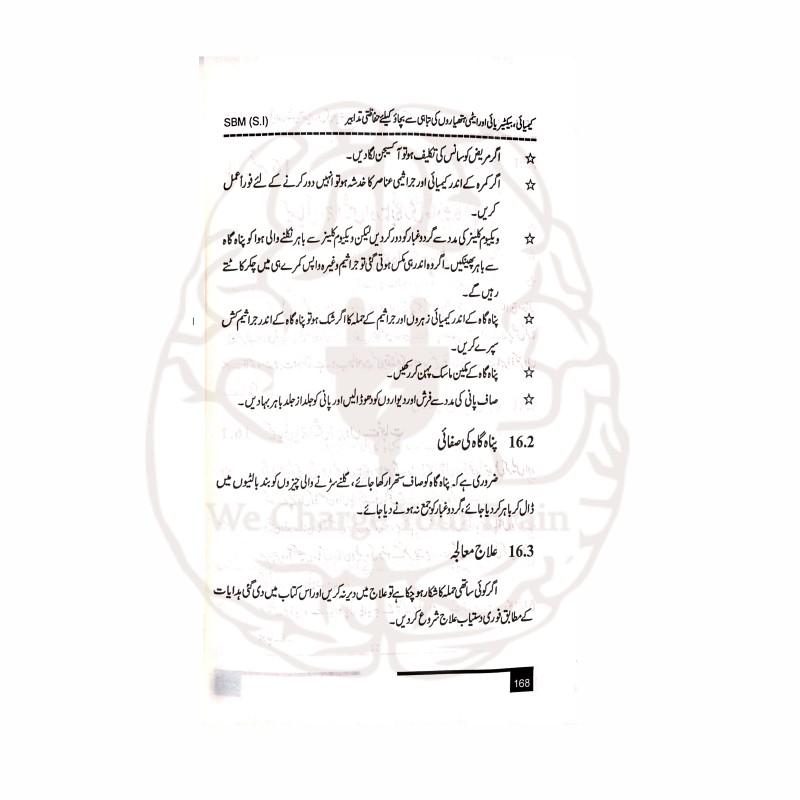 کیمیائی، بیکٹیریائی اور ایٹمی ہتھیاروں کی تباہی سے بچاؤ کیلئے حفاظتی تدابیر SBM (S.I)
☆ اگر مریض کو سانس کی تکلیف ہو تو آکسیجن لگا دیں۔
☆ اگر کمرہ کے اندر کیمیائی اور جراثیمی عناصر کا خدشہ ہو تو انہیں دور کرنے کے لئے فوراً عمل
کریں۔
☆ ویکیوم کلینر کی مدد سے گرد و غبار کو دور کر دیں لیکن ویکیوم کلینر سے باہر نکلنے والی ہوا کو پناہ گاہ
سے باہر پھینکیں۔ اگر وہ اندر ہی مکس ہوتی گئی تو جراثیم وغیرہ واپس کمرے ہی میں چکر کاٹتے
رہیں گے۔
☆ پناہ گاہ کے اندر کیمیائی زہروں اور جراثیم کے حملہ کا اگر شک ہو تو پناہ گاہ کے اندر جراثیم کش
سپرے کریں۔
☆ پناہ گاہ کے مکین ماسک پہن کر رکھیں۔
☆ صاف پانی کی مدد سے فرش اور دیواروں کو دھو ڈالیں اور پانی کو جلد از جلد باہر بہا دیں۔
16.2 پناہ گاہ کی صفائی
ضروری ہے کہ پناہ گاہ کو صاف ستھرا رکھا جائے، گلنے سڑنے والی چیزوں کو بند بالٹیوں میں
ڈال کر باہر کر دیا جائے، گرد و غبار کو جمع نہ ہونے دیا جائے۔
We Charge Your Brain
16.3 علاج معالجہ
اگر کوئی ساتھی حملہ کا شکار ہو چکا ہے تو علاج میں دیر نہ کریں اور اس کتاب میں دی گئی ہدایات
کے مطابق فوری دستیاب علاج شروع کر دیں۔
168